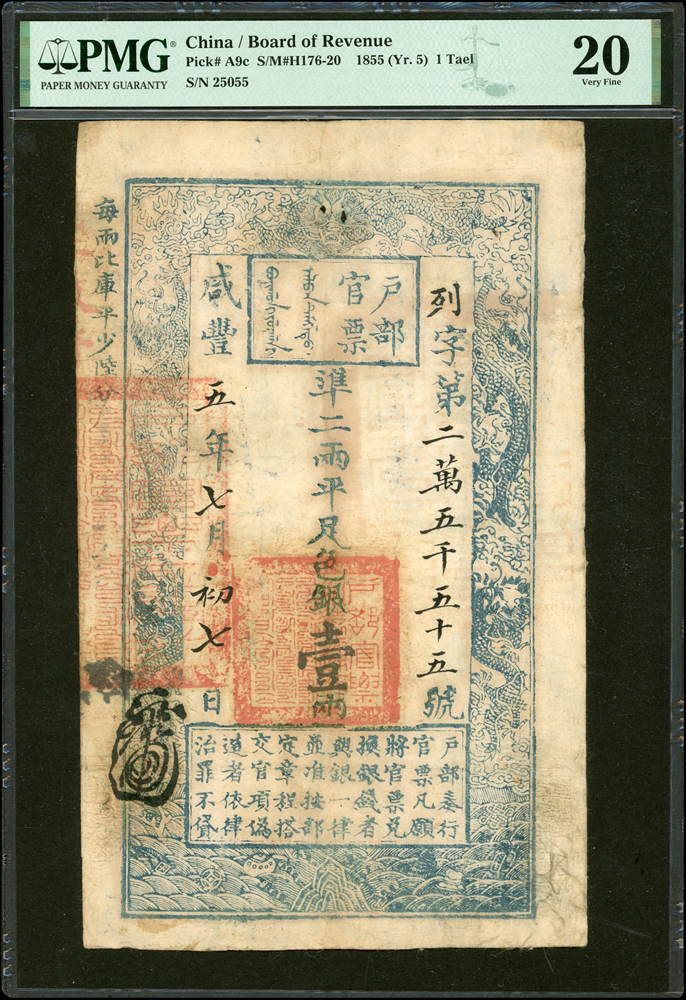 PMG
PAPER MONEY GUARANTY
China / Board of Revenue
Pick# A9c S/M#H176-20 1855 (Yr. 5) 1 Tael
S/N 25055
20
Very Fine
列字第二萬五千五十五號
戶部
官票
準二兩平足色銀壹兩
咸豐五年七月初七日
每兩比庫平少陸分
戶部奏行
官票凡願
將官票兌
換銀錢者
與銀一律
並准按部
定章程搭
交官項偽
造者依律
治罪不貸